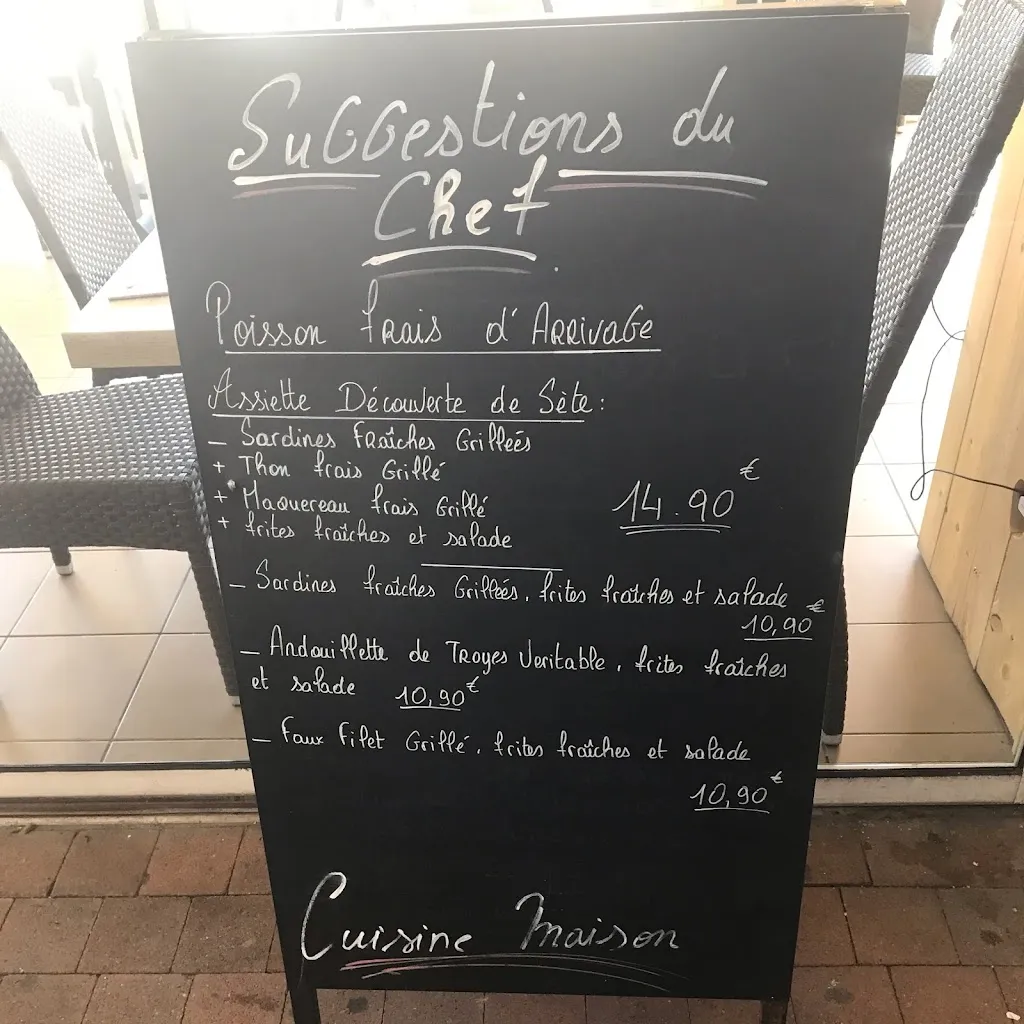 SuGGestions du
Chef
Poisson frais d'ARRivaGe
Assiette Découverte de Sète :
_ Sardines FRaîches Grilleés
+ Thon frais Grillé
+ Maquereau frais Grillé
+ frites fraîches et salade
14.90€
_ Sardines fraîches Grilleés, frites fraîches et salade
10,90€
_ Andouillette de TRoyes Veritable, frites fraîches
et salade 10,90€
_ Faux Filet Grillé, frites fraîches et salade
10,90€
Cuisine Maison